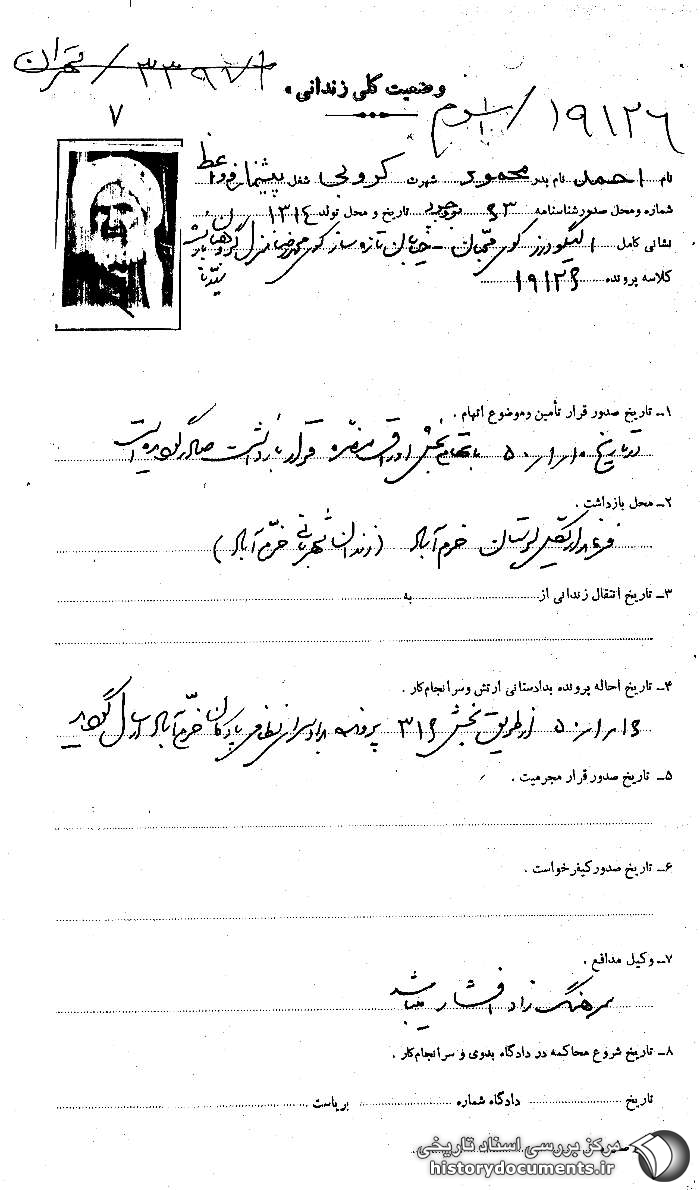 ۳۳۹۷/ تهران
۱۹۱۲۶/
وضعیت کلی زندانی
۷
نام احمد نام پدر محمود شهرت کروبی شغل پیشنماز و واعظ
شماره و محل صدور شناسنامه ۶۳ بروجرد تاریخ و محل تولد ۱۳۱۴
نشانی کامل الیگودرز کوی قمیان - خیابان تازه ساز کوی محمدرضا منزل
کلاسه پرونده ۱۹۱۲۶
۱ــ تاریخ صدور قرار تأمین و موضوع اتهام .
در تاریخ ۱۰ر۱ر۵۰ باتهام پخش اوراق مضره قرار بازداشت صادر گردیده است
۲ــ محل بازداشت .
فرمانداریکل لرستان خرم آباد (زندان شهربانی خرّم آباد)
۳ــ تاریخ انتقال زندانی از به
۴ــ تاریخ احاله پرونده بدادستانی ارتش و سرانجام کار .
۱۶ر۱ر۵۰ از طریق بخش ۳۱۶ پرونده بدادسرای نظامی پادگان خرّم آباد ارسال گردید
۵ــ تاریخ صدور قرار مجرمیت .
۶ــ تاریخ صدور کیفرخواست .
۷ــ وکیل مدافع .
سرهنگ زاد افشار میباشد
۸ــ تاریخ شروع محاکمه در دادگاه بدوی و سرانجام کار .
تاریخ دادگاه شماره بریاست
مرکز بررسی اسناد تاریخی
historydocuments.ir